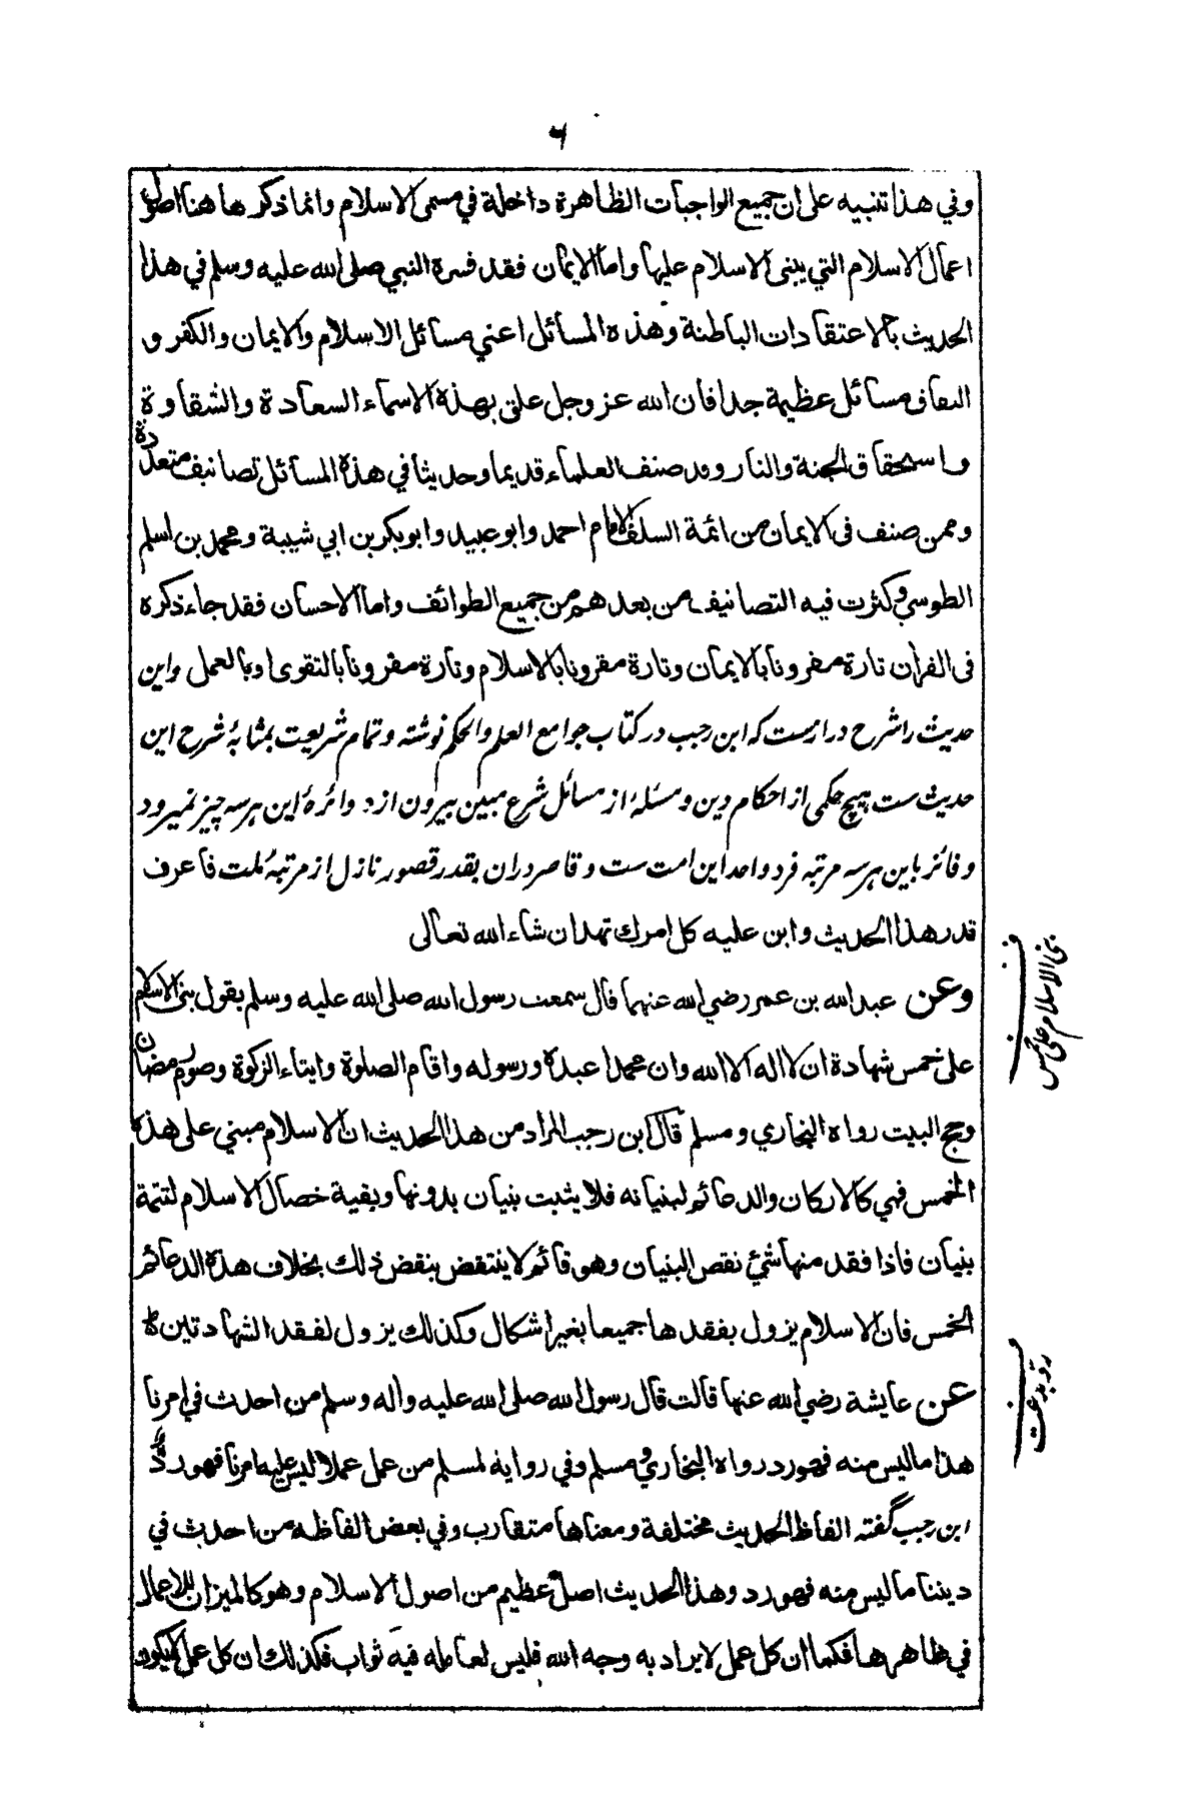 ٦
وفي هذا تنبيه على ان جميع الواجبات الظاهرة داخلة في مسمى الاسلام وانما ذكر هاهنا اصول
اعمال الاسلام التي يبنى الاسلام عليها واما الايمان فقد فسره النبي صلى الله عليه وسلم في هذا
الحديث بالاعتقادات الباطنة وهذه المسائل اعني مسائل الاسلام والايمان والكفر و
النفاق مسائل عظيمة جدا فان الله عز وجل علق بهذه الاسماء السعادة والشقاوة
واستحقاق الجنة والنار وقد صنف العلماء قديما وحديثا في هذه المسائل تصانيف متعددة
وممن صنف في الايمان من ائمة السلف الامام احمد وابو عبيد وابو بكر بن ابي شيبة ومحمد بن اسلم
الطوسي وكثرت فيه التصانيف من بعدهم من جميع الطوائف واما الاحسان فقد جاء ذكره
في القران تارة مقرونا بالايمان وتارة مقرونا بالاسلام وتارة مقرونا بالتقوى او بالعمل واین
حدیث را شرح درازست که ابن رجب در کتاب جوامع العلم والحکم نوشته و تمام شریعت بمثابۂ شرح این
حدیث ست هیچ حکمی از احکام دین و مسئلۂ از مسائل شرع مبین بیرون از دائرۂ این هر سه چیز نمیرود
و فائز باین هر سه مرتبه فرد واحد این امت ست و قاصر دران بقدر قصور نازل از مرتبۂ ملت فاعرف
قدر هذا الحديث وابن عليه كل امرك تهد ان شاء الله تعالى
وعن عبد الله بن عمر رضي الله عنهما قال سمعت رسول الله صلى الله عليه وسلم يقول بني الاسلام
على خمس شهادة ان لا اله الا الله وان محمدا عبده ورسوله واقام الصلوة وايتاء الزكوة وصوم رمضان
وحج البيت رواه البخاري ومسلم قال ابن رجب المراد من هذا الحديث ان الاسلام مبني على هذه
الخمس فهي كالاركان والدعائم لبنيانه فلا يثبت بنيان بدونها وبقية خصال الاسلام لتتمة
بنيان فاذا فقد منها شئ نقص البنيان وهو قائم لا ينتقض بنقض ذلك بخلاف هذه الدعائم
الخمس فان الاسلام يزول بفقدها جميعا بغير اشكال وكذلك يزول لفقد الشهادتين
عن عايشة رضي الله عنها قالت قال رسول الله صلى الله عليه واله وسلم من احدث في امرنا
هذا ما ليس منه فهو رد رواه البخاري ومسلم وفي رواية لمسلم من عمل عملا ليس عليه امرنا فهو ردّ
ابن رجب گفته الفاظ الحديث مختلفة ومعناها متقارب وفي بعض الفاظه من احدث في
ديننا ما ليس منه فهو رد وهذا الحديث اصل عظيم من اصول الاسلام وهو كالميزان للاعمال
في ظاهرها فكما ان كل عمل لا يراد به وجه الله فليس لعامله فيه ثواب فكذلك ان كل عمل لايكون
ف
بنی الاسلام علی خمس
ف
رد بدعت